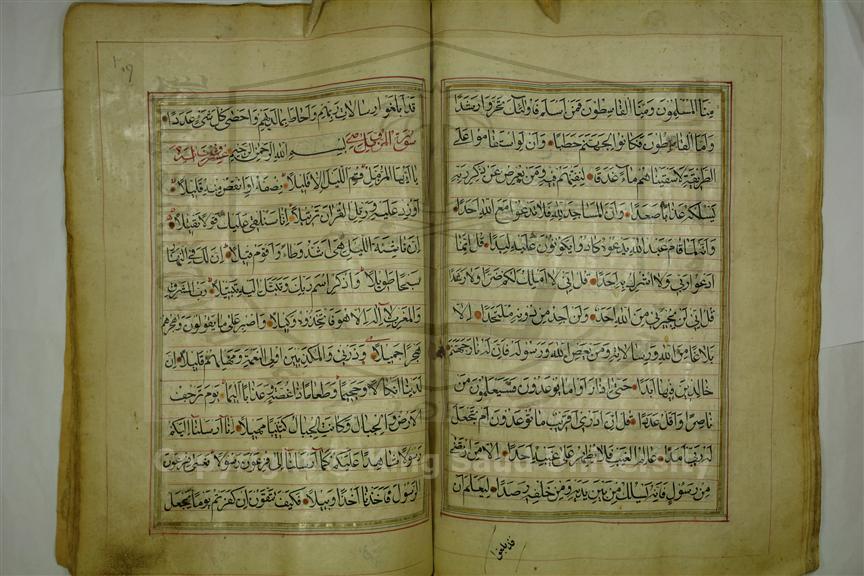 منا المسلمون ومنا القاسطون فمن اسلم فاولئك تحروا رشدا
واما القاسطون فكانوا لجهنم حطبا وان لو استقاموا على
الطريقة لاسقيناهم ماء غدقا لنفتنهم فيه ومن يعرض عن ذكر ربه
يسلكه عذابا صعدا وان المساجد لله فلا تدعوا مع الله احدا
وانه لما قام عبد الله يدعوه كادوا يكونون عليه لبدا قل انما
ادعوا ربي ولا اشرك به احدا قل اني لا املك لكم ضرا ولا رشدا
قل اني لن يجيرني من الله احد ولن اجد من دونه ملتحدا الا
بلاغا من الله ورسالاته ومن يعص الله ورسوله فان له نار جهنم
خالدين فيها ابدا حتى اذا راوا ما يوعدون فسيعلمون من
اضعف ناصرا واقل عددا قل ان ادري اقريب ما توعدون ام يجعل
له ربي امدا عالم الغيب فلا يظهر على غيبه احدا الا من ارتضى
من رسول فانه يسلك من بين يديه ومن خلفه رصدا ليعلم ان
قد ابلغوا
قد ابلغوا رسالات ربهم واحاط بما لديهم واحصى كل شئ عددا
سورة المزمل بسم الله الرحمن الرحيم
يا ايها المزمل قم الليل الا قليلا نصفه او انقص منه قليلا
او زد عليه ورتل القران ترتيلا انا سنلقي عليك قولا ثقيلا
ان ناشئة الليل هي اشد وطاء واقوم قيلا ان لك في النهار
سبحا طويلا واذكر اسم ربك وتبتل اليه تبتيلا رب المشرق
والمغرب لا اله الا هو فاتخذه وكيلا واصبر على ما يقولون واهجرهم
هجرا جميلا وذرني والمكذبين اولي النعمة ومهلهم قليلا ان
لدينا انكالا وجحيما وطعاما ذا غصة وعذابا اليما يوم ترجف
الارض والجبال وكانت الجبال كثيبا مهيلا انا ارسلنا اليكم
رسولا شاهدا عليكم كما ارسلنا الى فرعون رسولا فعصى فرعون
الرسول فاخذناه اخذا وبيلا فكيف تتقون ان كفرتم يوما يجعل
Copyright © King Saud University